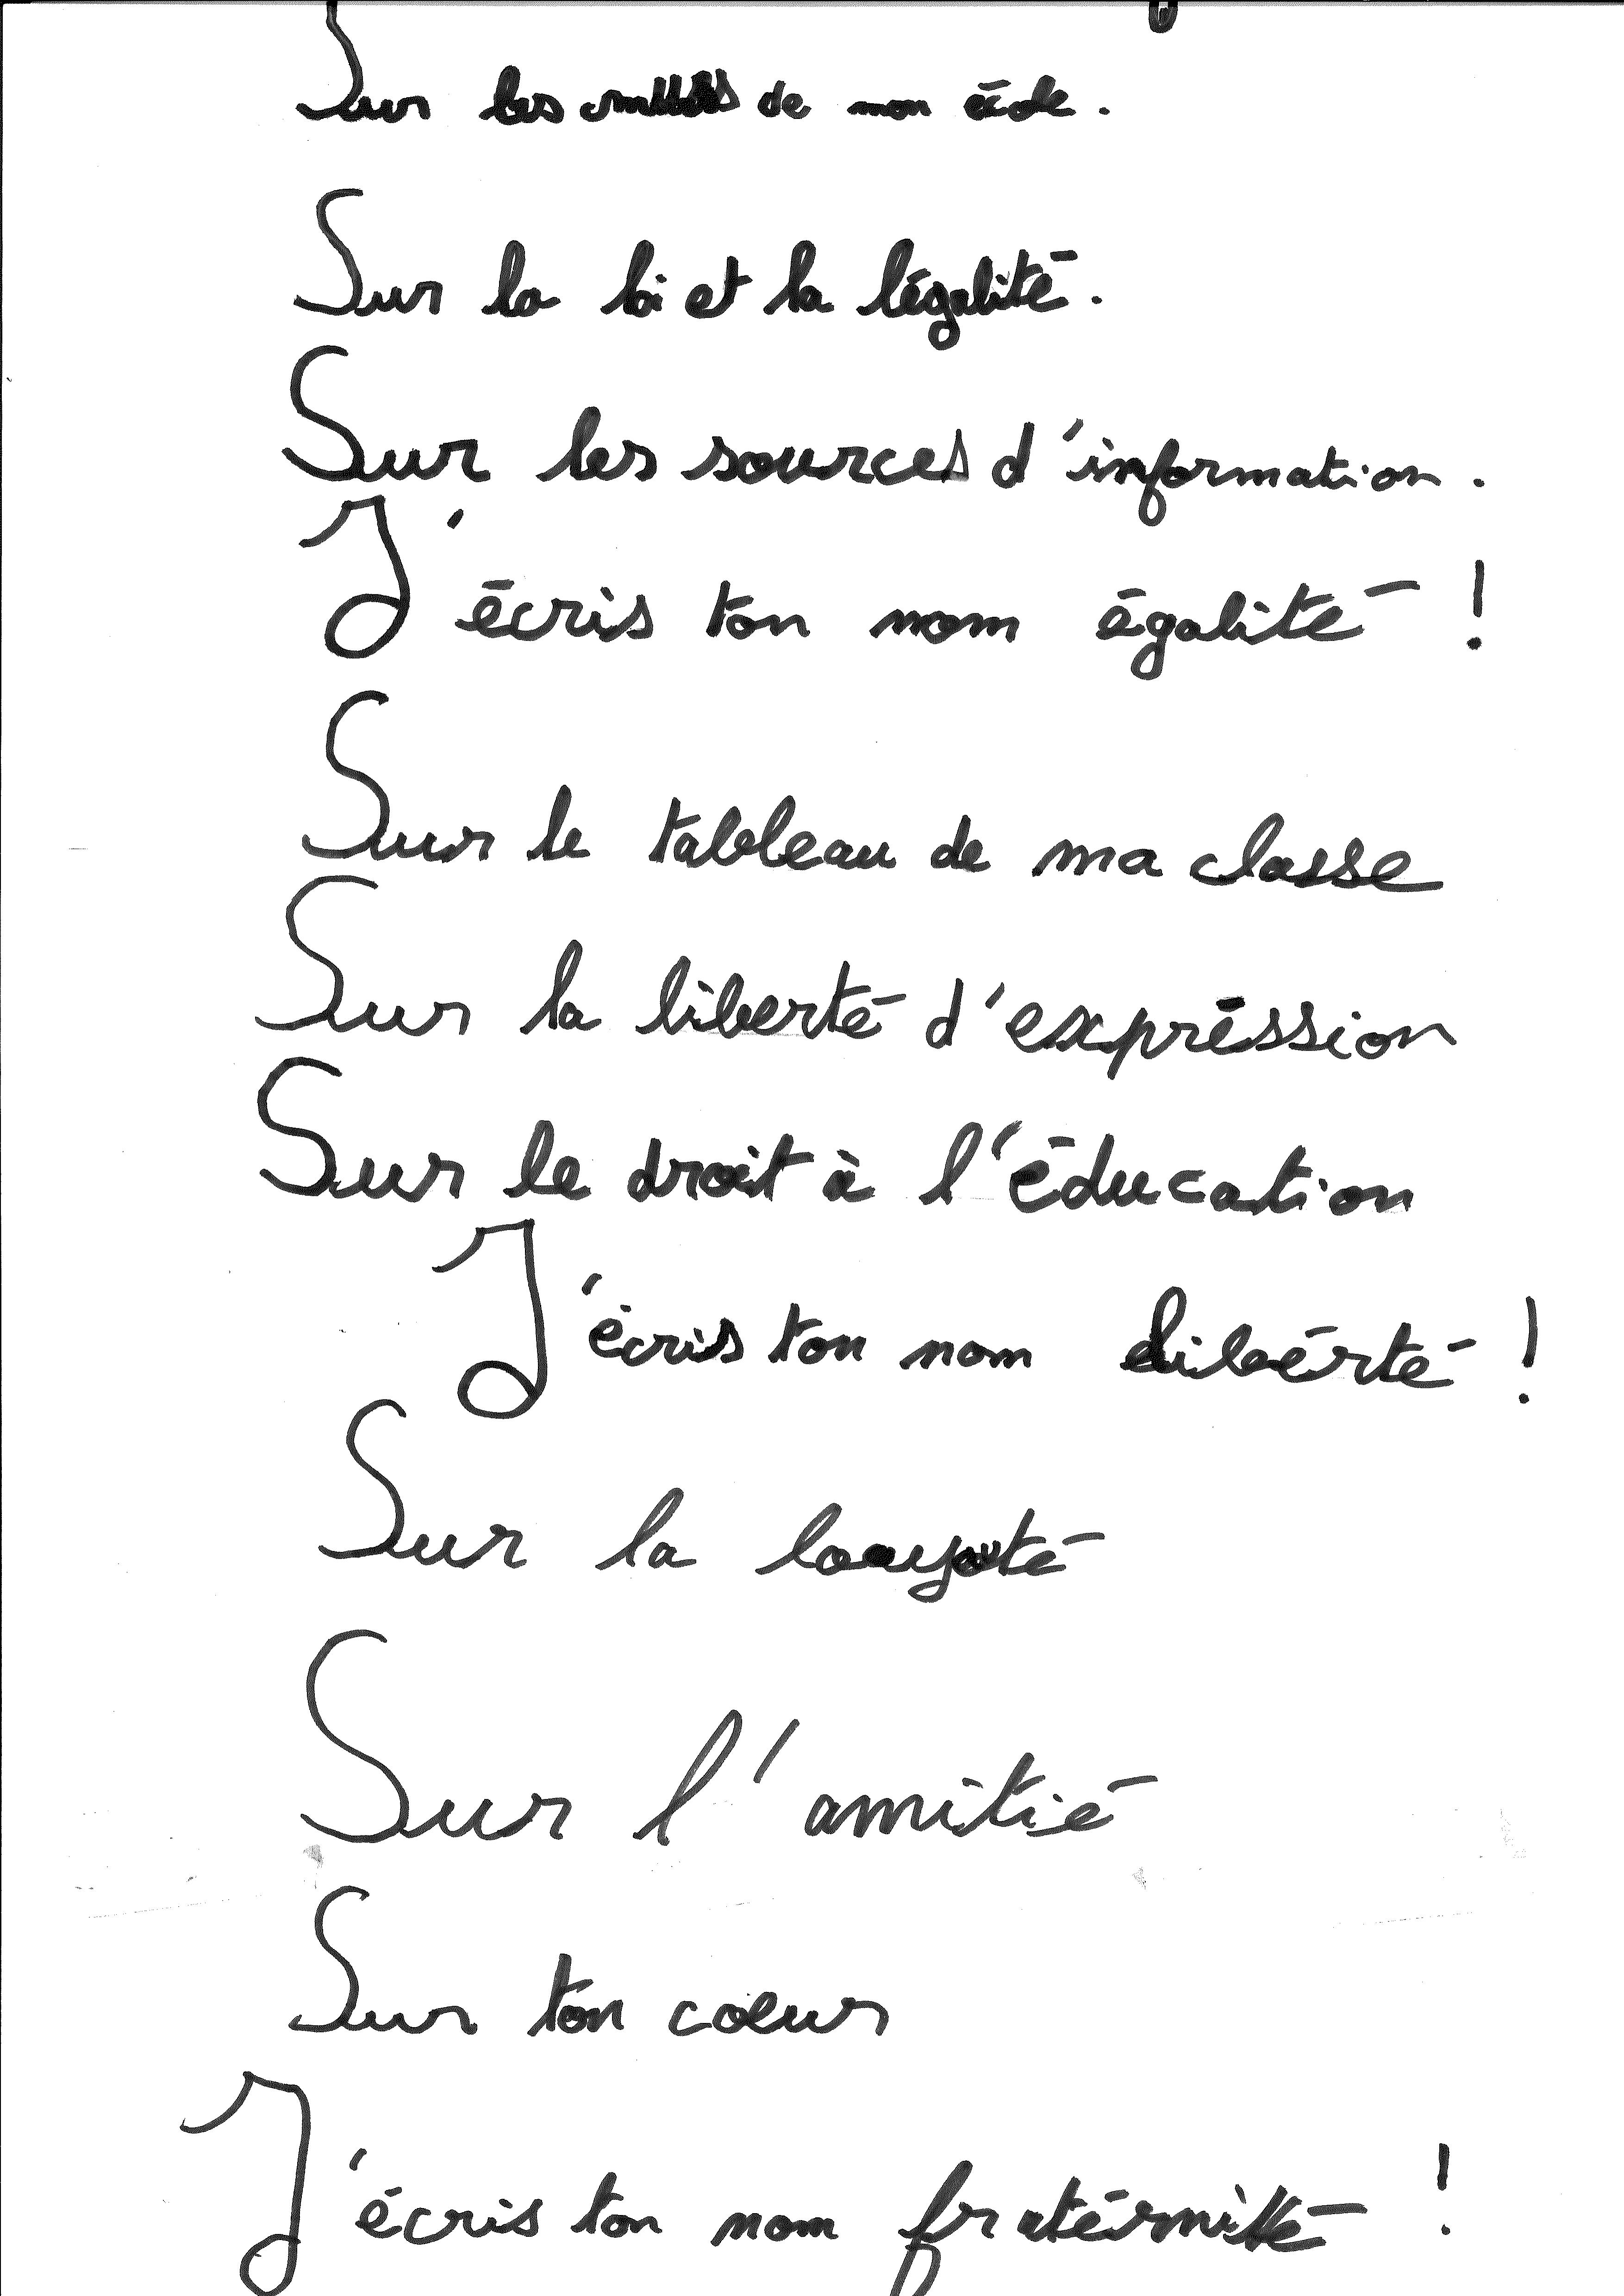 Sur les de mon école.
Sur la loi et la légalité.
Sur les sources d'information.
J'écris ton nom égalité !
Sur le tableau de ma classe
Sur la liberté d'expréssion
Sur le droit à l'éducation
J'écris ton nom libérté !
Sur la
Sur l'amitié
Sur ton coeur
J'écris ton nom fratérnité !